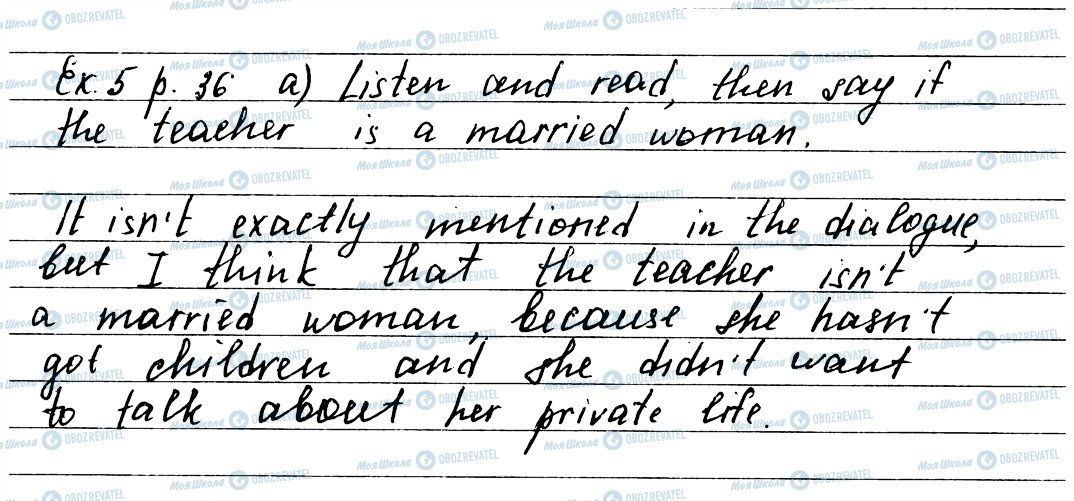 Ex. 5 p. 36 a) Listen and read, then say if
the teacher is a married woman.
It isn't exactly mentioned in the dialogue,
but I think that the teacher isn't
a married woman, because she hasn't
got children and she didn't want
to talk about her private life.